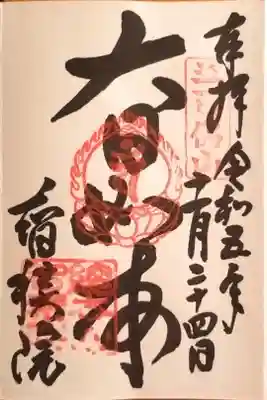 奉拝 令和五年
月二十四日
大日如来
智積院